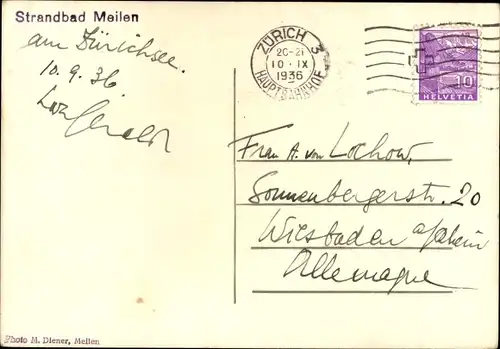 Strandbad Meilen
am Zürichsee.
10.9.36
ZÜRICH 3
20-21
10·IX
1936
HAUPTBAHNHOF
10
HELVETIA
Frau A. von Lochow,
Sonnenbergerstr. 20
Wiesbaden a/Rhein
Allemagne
Photo M. Diener, Meilen